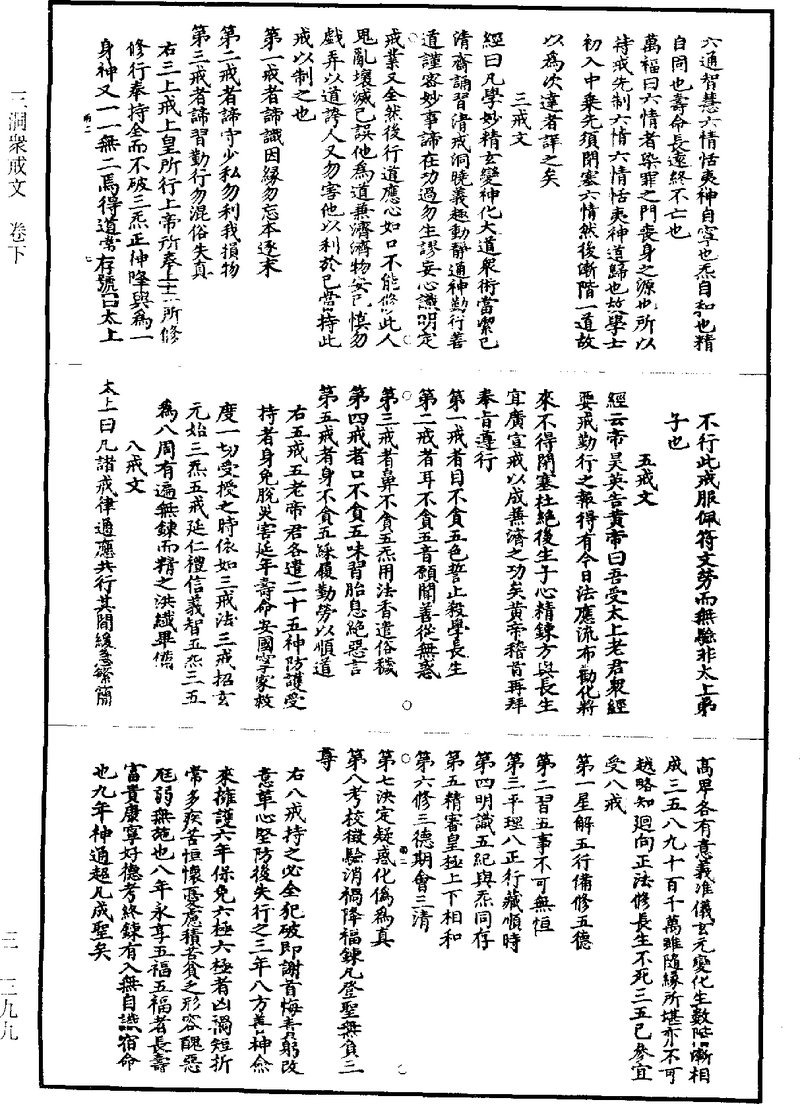 六通智慧六情恬夷神自寧也炁自和也精
自同也壽命長遠終不亡也
萬福曰六情者染罪之門喪身之源也所以
持戒先制六情六情恬夷神道歸也故學士
初入中乗先須閉塞六情然後漸階一道故
以爲次達者詳之矣
三戒文
經曰凡學妙精玄變神化大道衆術當潔己
清齋誦習清戒洞曉義趣動靜通神勤行善
道謹容妙事諦在功過勿生謬妄心識明定
戒業又全然後行道應心如口不能修此人
鬼亂壞滅已誤他爲道兼濟濟物安己慎勿
戲弄以道誇人又勿害他以利於已當持此
戒以制之也
第一戒者諦識因緣勿忘本逐末
第二戒者諦守少私勿利我損物
第三戒者諦習勤行勿混俗失真
右三上戒上皇所行上帝所奉上士所修
修行奉持全而不破三炁正神降與爲一
身神又一一無二焉得道常存號曰太上
不行此戒服佩符文勞而無驗非太上弟
子也
五戒文
經云帝昊英告黄帝曰吾受太上老君衆經
要戒勤行之報得有今日法應流布勸化將
來不得閉塞杜絶後生子心精鍊方與長生
宜廣宣戒以成兼濟之功矣黄帝稽首再拜
奉旨遵行
第一戒者目不貪五色誓止殺學長生
第二戒者耳不貪五音願聞善從無惑
第三戒者鼻不貪五炁用法香遣俗穢
第四戒者口不貪五味習胎息絶惡言
第五戒者身不貪五綵履勤勞以順道
右五戒五老帝君各遣二十五神防護受
持者身免脫災害延年壽命安國寧家救
度一切受授之時依如三戒法三戒招玄
元始三炁五戒延仁禮信義智五炁三五
爲八周有遍無鍊而精之洪纖畢備
八戒文
太上曰凡諸戒律通應共行其間緩急繁簡
髙卑各有意義准儀玄元變化生數階漸相
成三五八九十百千萬雖隨緣所堪亦不可
越略知迴向正法修長生不死三五已參宜
受八戒
第一星解五行備修五德
第二習五事不可無恒
第三平理八正行藏順時
第四明識五紀與炁同存
第五精審皇極上下相和
第六修三德期會三清
第七決定疑惑化僞爲真
第八考校徵驗消禍降福鍊凡登聖無負三
尊
右八戒持之必全犯破即謝首悔責躬改
意革心堅防後失行之三年八方善神僉
來擁護六年保免六極六極者凶禍短折
常多疾苦恒懷憂慮積苦貧乏形容醜惡
尫弱無施也八年永享五福五福者長壽
富貴康寧好德考終鍊有入無自識宿命
也九年神通超凡成聖矣
三洞衆戒文 卷下
三 三九九